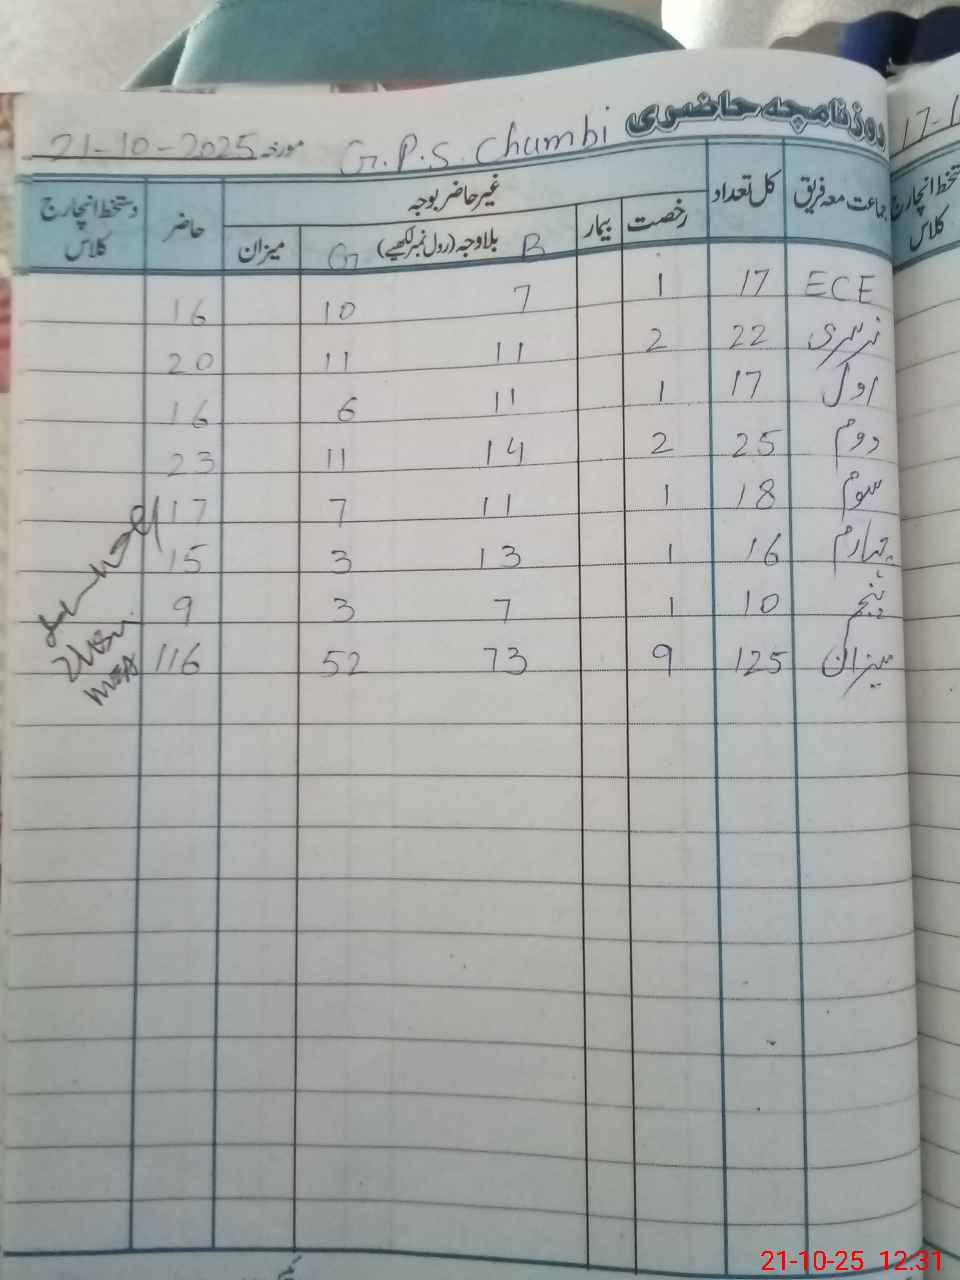 روزنامچہ حاضری G.P.S. Chumbi مورخہ 21-10-2025
جماعت معہ فریق کل تعداد غیر حاضر بوجہ حاضر دستخط انچارج کلاس
رخصت بیمار بلاوجہ (رول نمبر لکھیے) B G میزان
ECE 17 1 7 10 16
نرسری 22 2 11 11 20
اول 17 1 11 6 16
دوم 25 2 14 11 23
سوم 18 1 11 7 17
چہارم 16 1 13 3 15
پنجم 10 1 7 3 9
میزان 125 9 73 52 116
17-1
دستخط انچارج کلاس
21-10-25 12:31